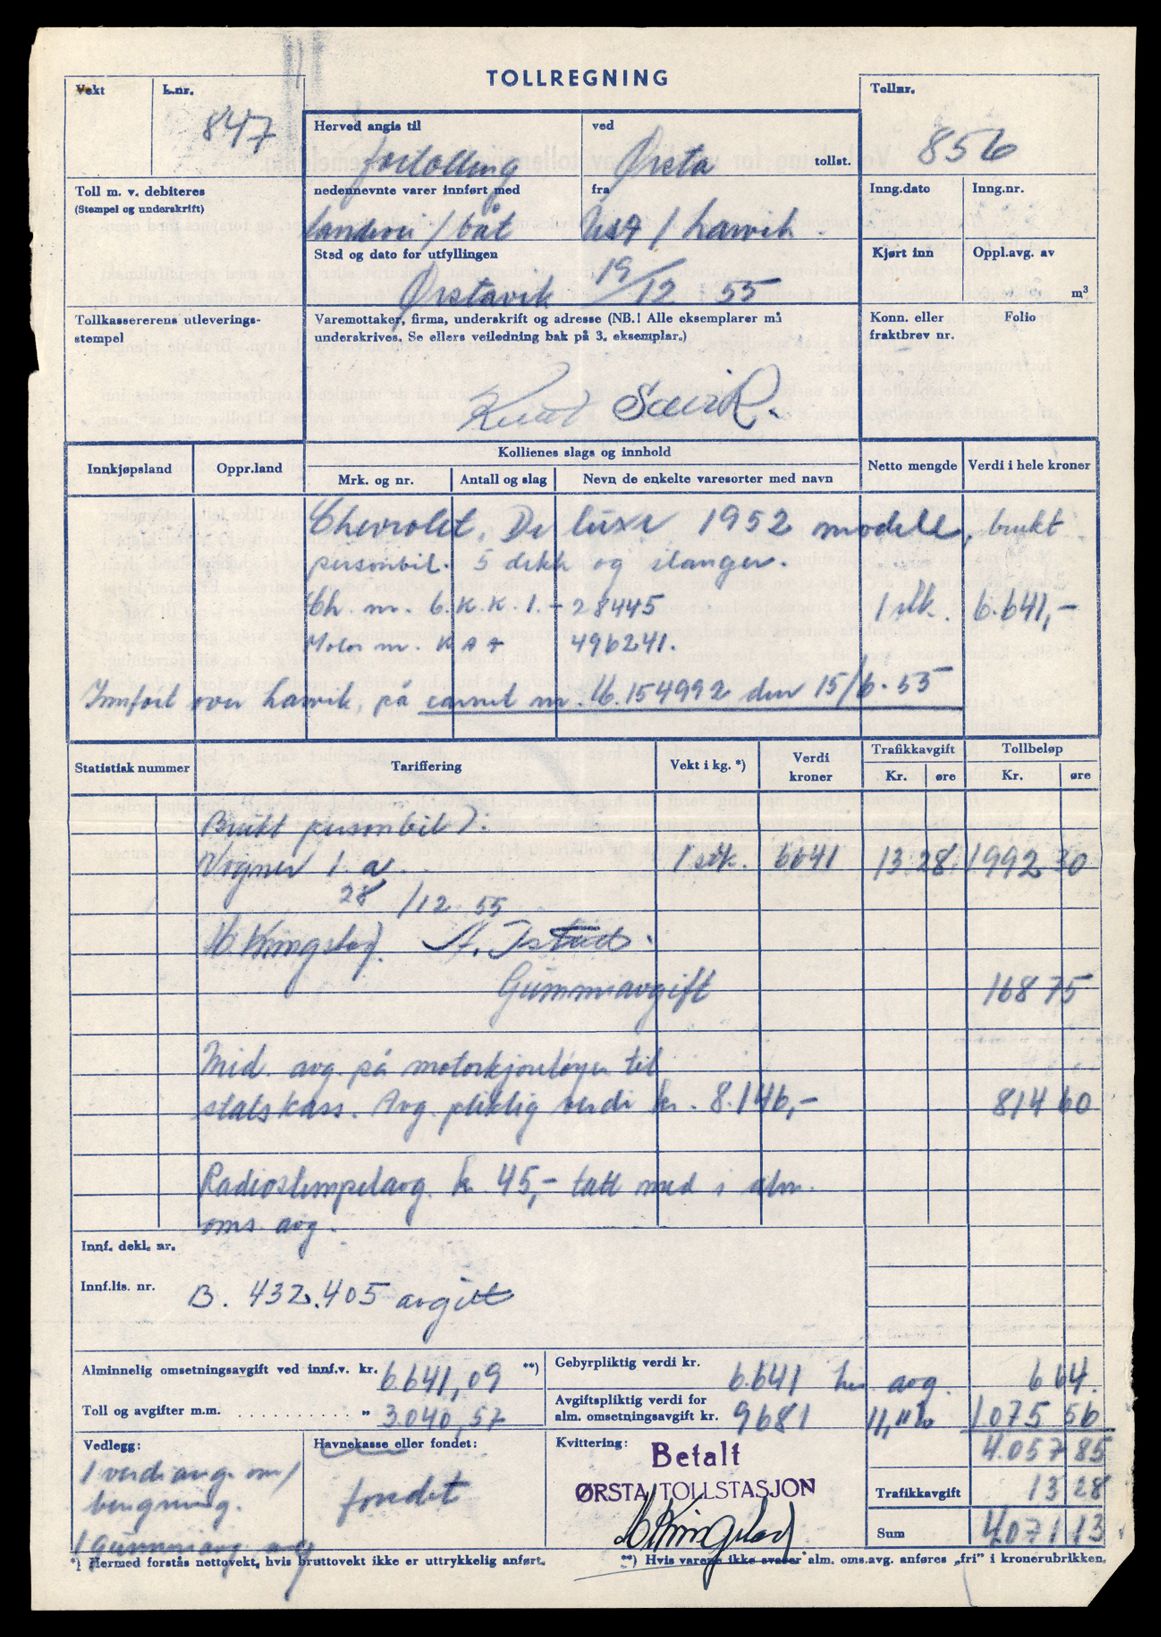 TOLLREGNING
Vekt
L.nr.
847
Herved angis til
fortolling
ved
Ørsta
tollst.
Tollnr.
856
Toll m. v. debiteres
(Stempel og underskrift)
nedennevnte varer innført med
landvei / båt
fra
Usa / Larvik.
Inng.dato
Inng.nr.
Sted og dato for utfyllingen
Ørstavik 19/12 55
Kjørt inn
Oppl.avg. av
m³
Tollkassererens utleverings-
stempel
Varemottaker, firma, underskrift og adresse (NB.! Alle eksemplarer må
underskrives. Se ellers veiledning bak på 3. eksemplar.)
Knut
Konn. eller
fraktbrev nr.
Folio
Innkjøpsland
Oppr.land
Kollienes slags og innhold
Mrk. og nr.
Antall og slag
Nevn de enkelte varesorter med navn
Netto mengde
Verdi i hele kroner
Chevrolet, De luxe 1952 modell, brukt
personbil. 5 dekk og slanger.
Ch. nr. 6. K.K. 1. - 28445 1 stk. 6.641,-
Motor nr. K A 496241.
Innført over Larvik, på carnet nr. U.154992 den 15/6-55
Statistisk nummer
Tariffering
Vekt i kg. *)
Verdi
kroner
Trafikkavgift
Kr.
øre
Tollbeløp
Kr.
øre
Brukt personbil):
Vogner 1. a. 1 stk. 6641 13 28 1992 30
28/12 55
M. Kringstad.
Gummiavgift 168 75
Mid. avg. på motorkjøretøyer til
statskass. Avg. pliktig verdi kr. 8.146,- 814 60
Radiostempelavg. kr. 45,- tatt med i alm.
oms avg.
Innf. dekl. nr.
Innf.lis. nr. B. 432.405 avgitt
Alminnelig omsetningsavgift ved innf.v. kr. 6.641,09 **)
Gebyrpliktig verdi kr. 6.641 avg. 6 64.
Toll og avgifter m.m. . . . . . . . . . . „ 3.040,57
Avgiftspliktig verdi for
alm. omsetningsavgift kr. 9681 11,11% 1.075 56
4.057 85
Vedlegg:
1 verdiang. om/
beregning.
1 gummiavg.
Havnekasse eller fondet:
fondet
Kvittering:
Betalt
ØRSTA TOLLSTASJON
M Kringstad
Trafikkavgift 13 28
Sum 4.071 13
*) Hermed forstås nettovekt, hvis bruttovekt ikke er uttrykkelig anført.
**) Hvis varene ikke svarer alm. oms.avg. anføres „fri” i kronerubrikken.